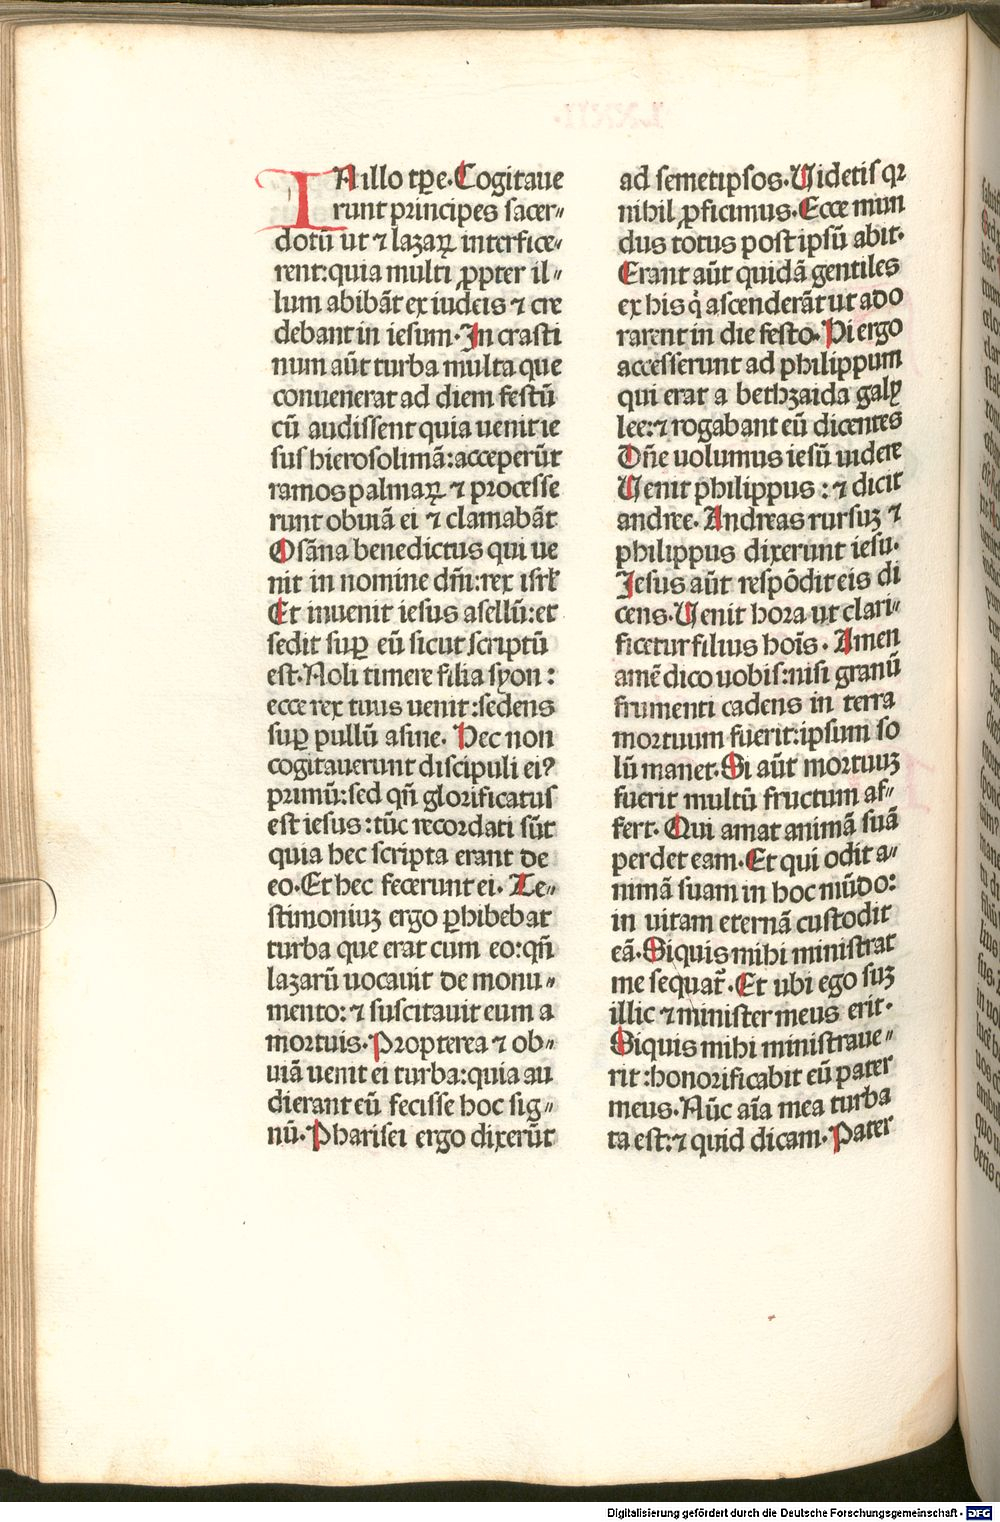 IN illo tꝑe. Cogitaue
runt principes sacer⸗
dotū ut ⁊ lazaꝝ interfice⸗
rent: quia multi ꝓpter il⸗
lum abibāt ex iudeis ⁊ cre
debant in iesum. In crasti
num aūt turba multa que
conuenerat ad diem festū
cū audissent quia uenit ie
sus hierosolimā: acceperūt
ramos palmaꝝ ⁊ processe
runt obuiā ei ⁊ clamabāt
Osāna benedictus qui ue
nit in nomine dm̄i: rex isrl̓
Et inuenit iesus asellū: et
sedit suꝑ eū sicut scriptū
est. Noli timere filia syon :
ecce rex tuus uenit : sedens
suꝑ pullū asine. Hec non
cogitauerunt discipuli ei?
primū: sed qn̄ glorificatus
est iesus : tūc recordati sūt
quia hec scripta erant de
eo. Et hec fecerunt ei. Te⸗
stimoniuʒ ergo ꝑhibebat
turba que erat cum eo: qn̄
lazarū uocauit de monu⸗
mento: ⁊ suscitauit eum a
mortuis. Propterea ⁊ ob⸗
uiā uenit ei turba: quia au
dierant eū fecisse hoc sig⸗
nū. Pharisei ergo dixerūt
ad semetipsos. Uidetis qꝛ
nihil ꝓficimus. Ecce mun
dus totus post ipsū abit.
Erant aūt quidā gentiles
ex his q̇ ascenderāt ut ado
rarent in die festo. Hi ergo
accesserunt ad philippum
qui erat a bethzaida galy
lee: ⁊ rogabant eū dicentes
Dn̄e uolumus iesū uidere
Uenit philippus : ⁊ dicit
andree. Andreas rursuʒ ⁊
philippus dixerunt iesu.
Jesus aūt respōdit eis di
cens. Uenit hora ut clari⸗
ficetur filius hoīs. Amen
amē dico uobis: nisi granū
frumenti cadens in terra
mortuum fuerit: ipsum so
lū manet. Si aūt mortuuʒ
fuerit multū fructum af⸗
fert. Qui amat animā suā
perdet eam. Et qui odit a⸗
nimā suam in hoc mūdo:
in uitam eternā custodit
eā. Siquis mihi ministrat
me sequat̄. Et ubi ego suʒ
illic ⁊ minister meus erit.
Siquis mihi ministraue⸗
rit : honorificabit eū pater
meus. Nūc aīa mea turba
ta est: ⁊ quid dicam. Pater
Digitalisierung gefördert durch die Deutsche Forschungsgemeinschaft - DFG